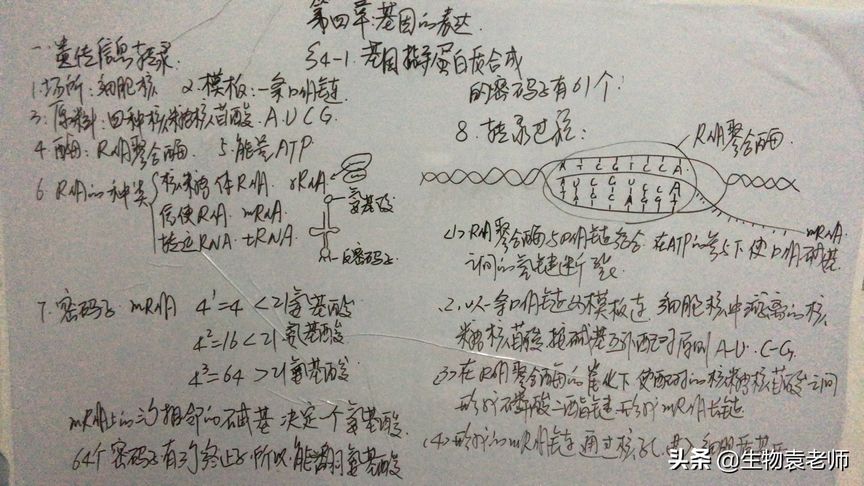 第四章:基因的表达.
§4-1.基因指导蛋白质合成
一.遗传信息转录.
1.场所:细胞核 2.模板:一条DNA链
3.原料:四种核糖核苷酸.A.U.C.G.
4.酶:RNA聚合酶. 5.能量ATP
6.RNA的种类
核糖体RNA. rRNA.
信使RNA. mRNA.
转运RNA. tRNA.
氨基酸
反密码子
7.密码子 mRNA 4¹=4<21氨基酸
4²=16<21氨基酸
4³=64>21氨基酸
mRNA上的三个相邻的碱基决定一个氨基酸.
64个密码子有3个终止子所以.能翻译氨基酸
的密码子有61个:
8.转录过程:
RNA聚合酶.
A T C G T C C A
A U C G U C C A
mRNA
(1)RNA聚合酶与DNA链结合.在ATP的参与下使DNA碱基
之间的氢键断裂
(2)以一条DNA链为模板连.细胞核中游离的核
糖核苷酸.按碱基互补配对原则A-U.C-G.
(3)在RNA聚合酶的催化下使配对的核糖核苷酸之间
形成磷酸二酯键形成mRNA长链
(4)形成的mRNA链通过核孔.进入细胞质基
头条 @生物袁老师